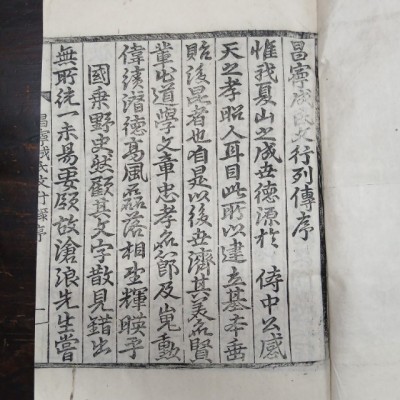 昌寧成氏文行列傳序
惟我夏山之成世德源於 侍中公感
天之孝昭人耳目此所以建立基本垂
貽後昆者也自是以後世濟其美名賢
輩出道學文章忠孝名節及嵬勳
偉績潛德高風磊落相望輝暎乎
國乘野史然顧其文字散見錯出
無所統一未易要領故滄浪先生嘗
昌寧成氏文行錄序 一